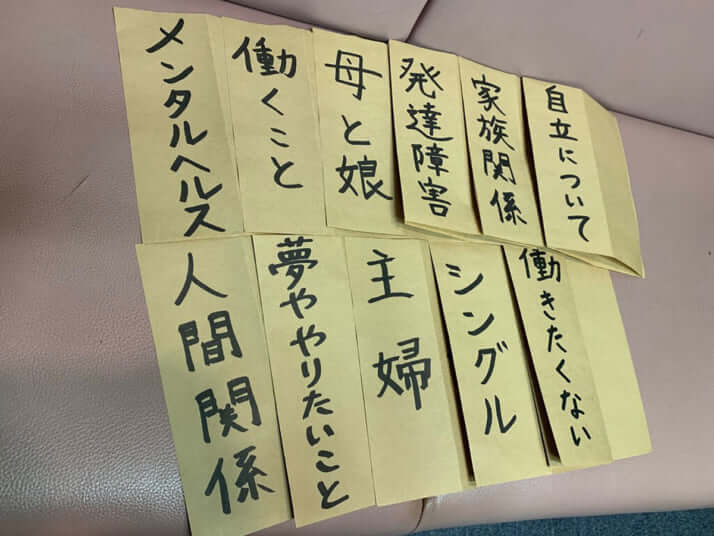 メンタルヘルス
働くこと
母と娘
発達障害
家族関係
自立について
人間関係
夢ややりたいこと
主婦
シングル
働きたくない